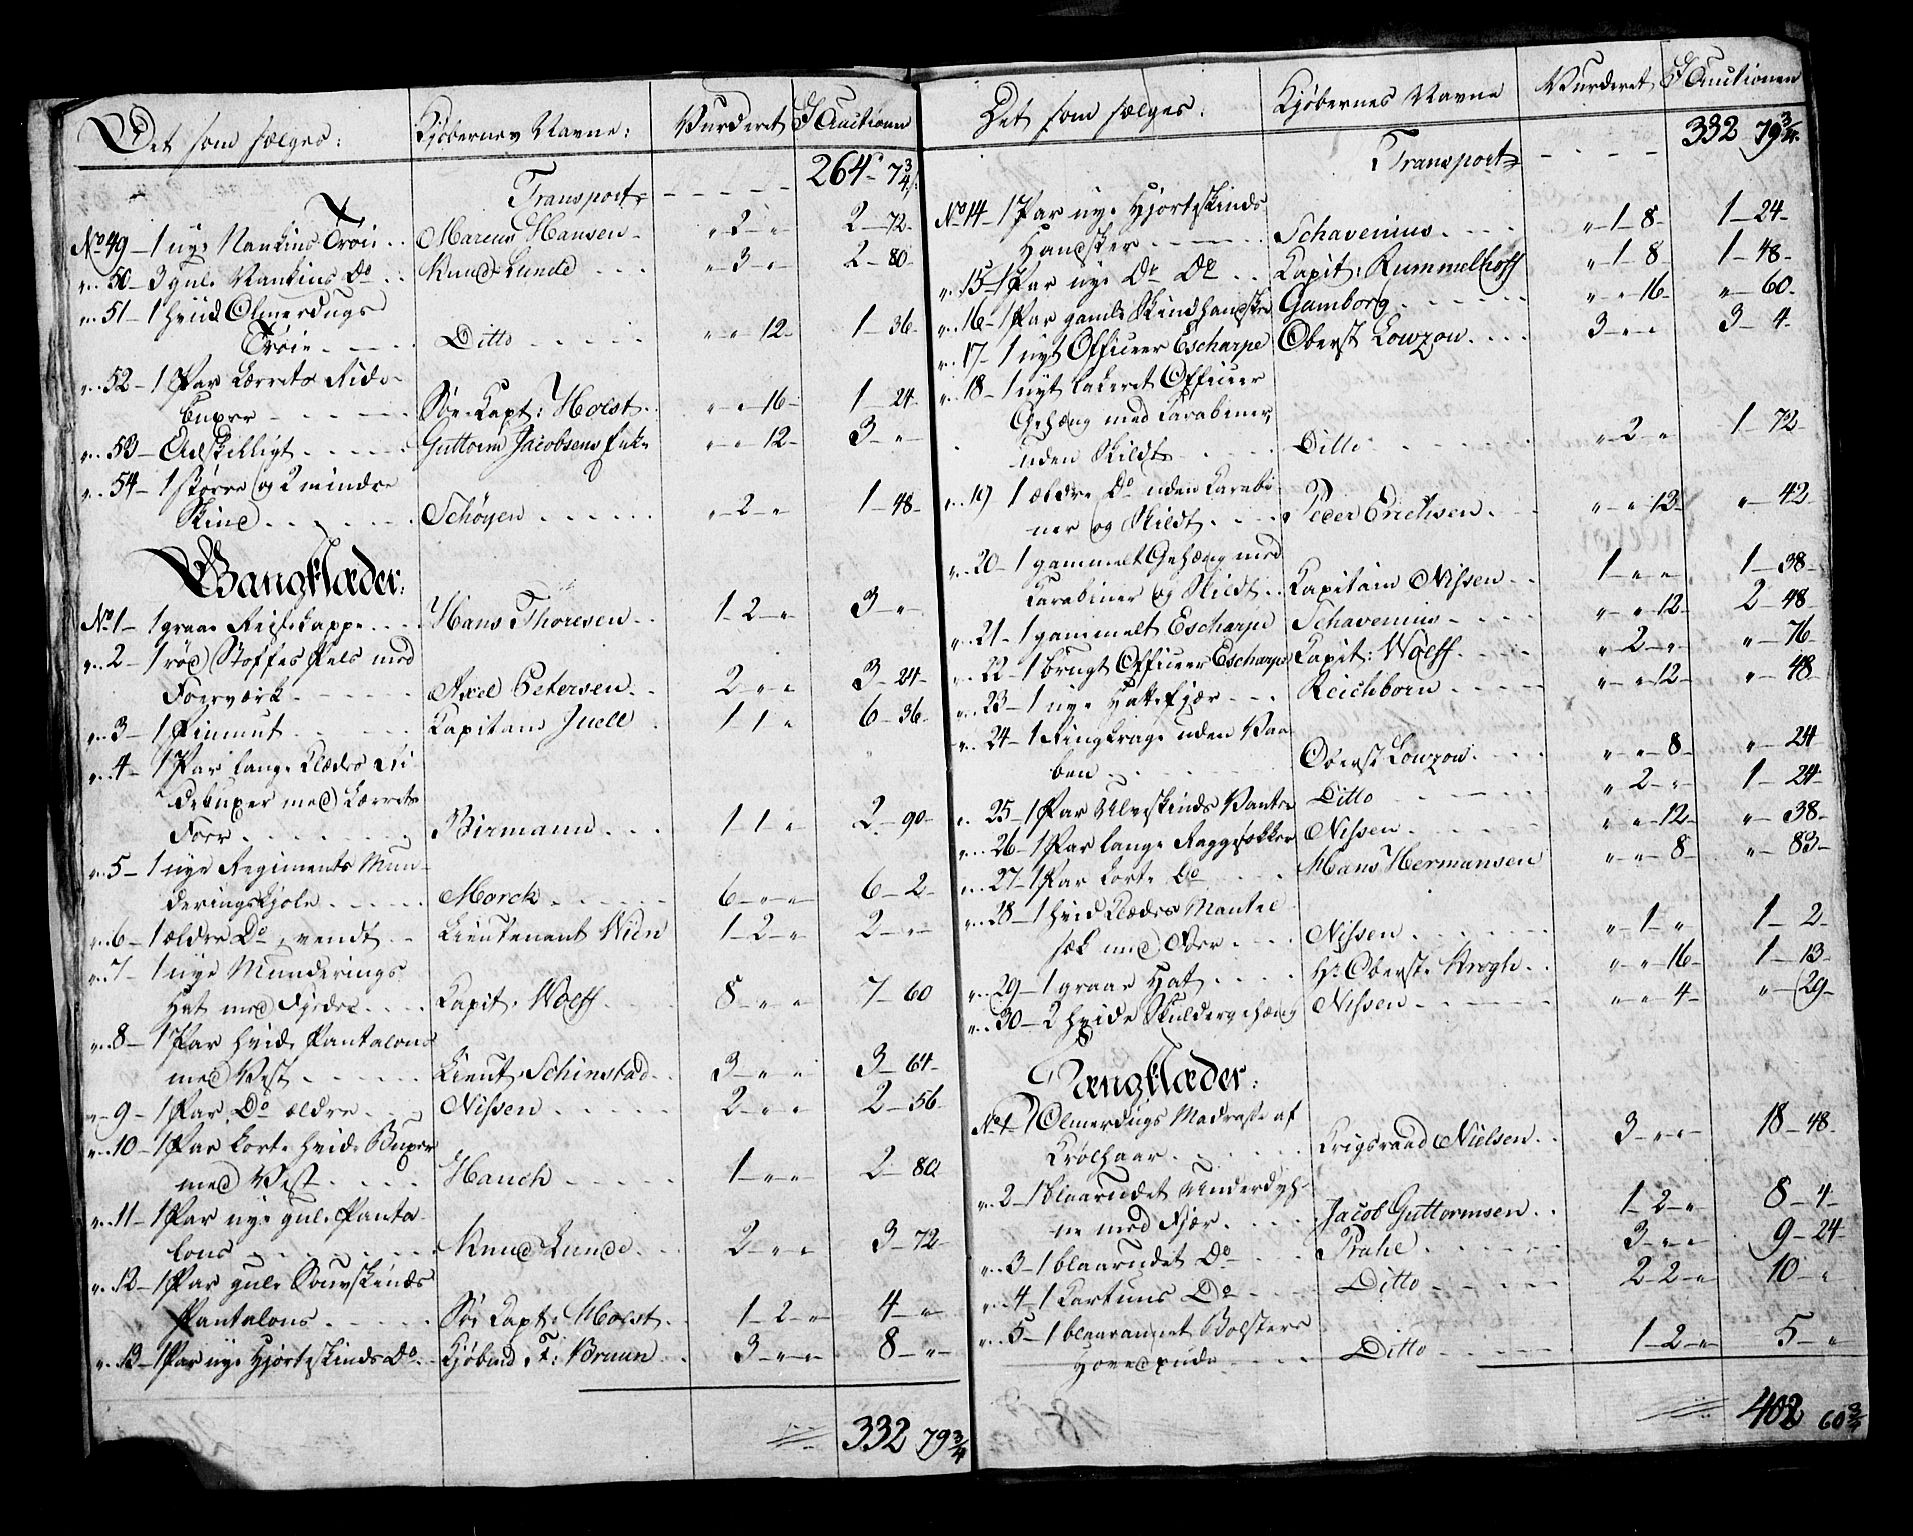 Det som sælges: Kjøbernes Navne: Vurderet I Auctionen
Transport - - - - - 264 - 7 3/4
No 49 - 1 nye Nankins Trøie . . Marcus Hansen - " 2 " 2 - 72 -
" 50 - 3 gule Nankins Do . . Knud Lunde . . . " 3 " 2 - 80 -
" 51 - 1 hvid Olmerdugs
Trøie . - - . Ditto . . . . . " " 12 - 1 - 36 -
" 52 - 1 Par Lærreds Ride-
buxer - - - - - Søe-Kapt: Holst . " " 16 - 1 - 24 -
" 53 - Adskilligt . . . . . Guttorm Jacobsens Enke " " 12 - 3 - "
" 54 - 1 større og 2 mindre
Skind . . . . . . Schöyen . . . . . " 2 " 1 - 48 -
Gangklæder:
No 1 - 1 graae Reisekappe . . . Hans Thoresen . . 1 - 2 - " 3 - "
" 2 - 1 rød Stoffes Pels med
Foerværk - - - - - Axel Petersen . . 2 " " 3 - 24 -
" 3 - 1 Pimmut . . . . . Kapitain Juell . 1 1 " 6 - 36 -
" 4 - 1 Par lange Klædes Ri-
debuxer med Lærreds
Foer . . . . . . . Birmann . . . 1 - 1 " 2 - 90 -
" 5 - 1 nye Regiments Mun-
deringskjole . . . . . Morck . . . . . . 6 - " - " 6 - 2 -
" 6 - 1 ældre Do, vendt . . Lieutenant Wien 1 - 2 - " 2 - "
" 7 - 1 nye Munderings
Hat med Fjeder . . . . Kapit: Wolff . . . 8 - " " 7 - 60
" 8 - 1 Par hvide Pantalons
med Vest . . . . . Lieut. Schinstad . . 3 - " " 3 - 64 -
" 9 - 1 Par Do ældre . . . Nissen . . . . . 2 - " " 2 - 56 -
" 10 - 1 Par korte hvide Buxer
med Vest . . . . Hauch . . . . . 1 - " - " 2 - 80
" 11 - 1 Par nye gule Panta-
lons . . . . . . . Knud Lunde . . 2 - " " 3 - 72 -
" 12 - 1 Par gule Souvskinds
Pantalons . . . . . Søe Kapt: Holst . . 1 - 2 - " 4 - "
" 13 - 1 Par nye Hjorteskinds Do . Kjøbmd T: Bruun . . 3 - " - " 8 - " -
332 79 3/4
Det som sælges: Kjøbernes Navne Vurderet I Auctionen
Transport - - - - 332 79 3/4
No 14 - 1 Par nye Hjorteskinds
Handsker . . . - . . Schavenius . . . . " 1 - 8 - 1 - 24 -
" 15 - 1 Par nye Do Do . . Kapit: Rummelhoff " 1 - 8 - 1 - 48 -
" 16 - 1 Par gamle Skindhandsker Gamborg . . . . . " " 16 - " - 60 -
" 17 - 1 nyt Officeer Escharpe Oberst Lowzow . . . . 3 - " " 3 - 4 -
" 18 - 1 nyt lakeret Officeer
Gehæng med Karabiner,
uden Skildt . . . . . Ditto . . . . . . " 2 - " 1 - 72
" 19 1 ældre Do uden Karabi-
ner og Skildt . . . . Peder Erichsen . . . " " 12 - " - 42 -
" 20 - 1 gammelt Gehæng med
Karabiner og Skildt . . Kapitain Nissen . . 1 " " 1 - 38 -
" 21 - 1 gammelt Escharpe Schavenius . . . . " " 12 - 2 - 48 -
" 22 - 1 brugt Officeer Escharpe Kapit: Wolff . . . . " 2 - " " - 76 -
" 23 - 1 nye Hattefjær . . . Reichborn . . . . " " 12 - " - 48
" 24 - 1 Ringkrage uden Vaa-
ben . . . . . . . Oberst Lowzow . . . . " " 8 - " - 24
" 25 - 1 Par Ulveskinds Vanter Ditto . . . . . " 2 - " 1 - 24 -
" 26 - 1 Par lange Raggsokker Nissen . . . . . . " " 12 - " - 38 -
" 27 - 1 Par korte Do . . . Hans Hermansen " " 8 - " - 83 -
" 28 - 1 hvid Klædes Mantel-
sæk med Foer . . . . Nissen . . . . . . " 1 - " 1 - 2 -
" 29 - 1 graae Hat . . . . Hr Oberst Krogh . . " " 16 - 1 - 13 -
" 30 - 2 hvide Skuldergehæng Nissen . . . . . . " " 4 - " - 29 -
Sængklæder:
No 1 - 1 Olmerdugs Madratse af
Krølhaar . . . . . . Krigsraad Nielsen . . 3 - " " 18 - 48 -
" 2 - 1 blaarudet Underdyh-
ne med Fjær . . . . Jacob Guttormsen . . 1 - 2 - " 8 - 4 -
" 3 - 1 blaarudet Do . . . Prahl . . . . . . 3 - " " 9 - 24 -
" 4 - 1 Kartuns Do . . . . Ditto . . . . . . 2 - 2 - " 10 - "
" 5 - 1 blaarannet Bolsters
Hovedpude . . . . Ditto . . . . . 1 - 2 - " 5 - "
402 60 3/4